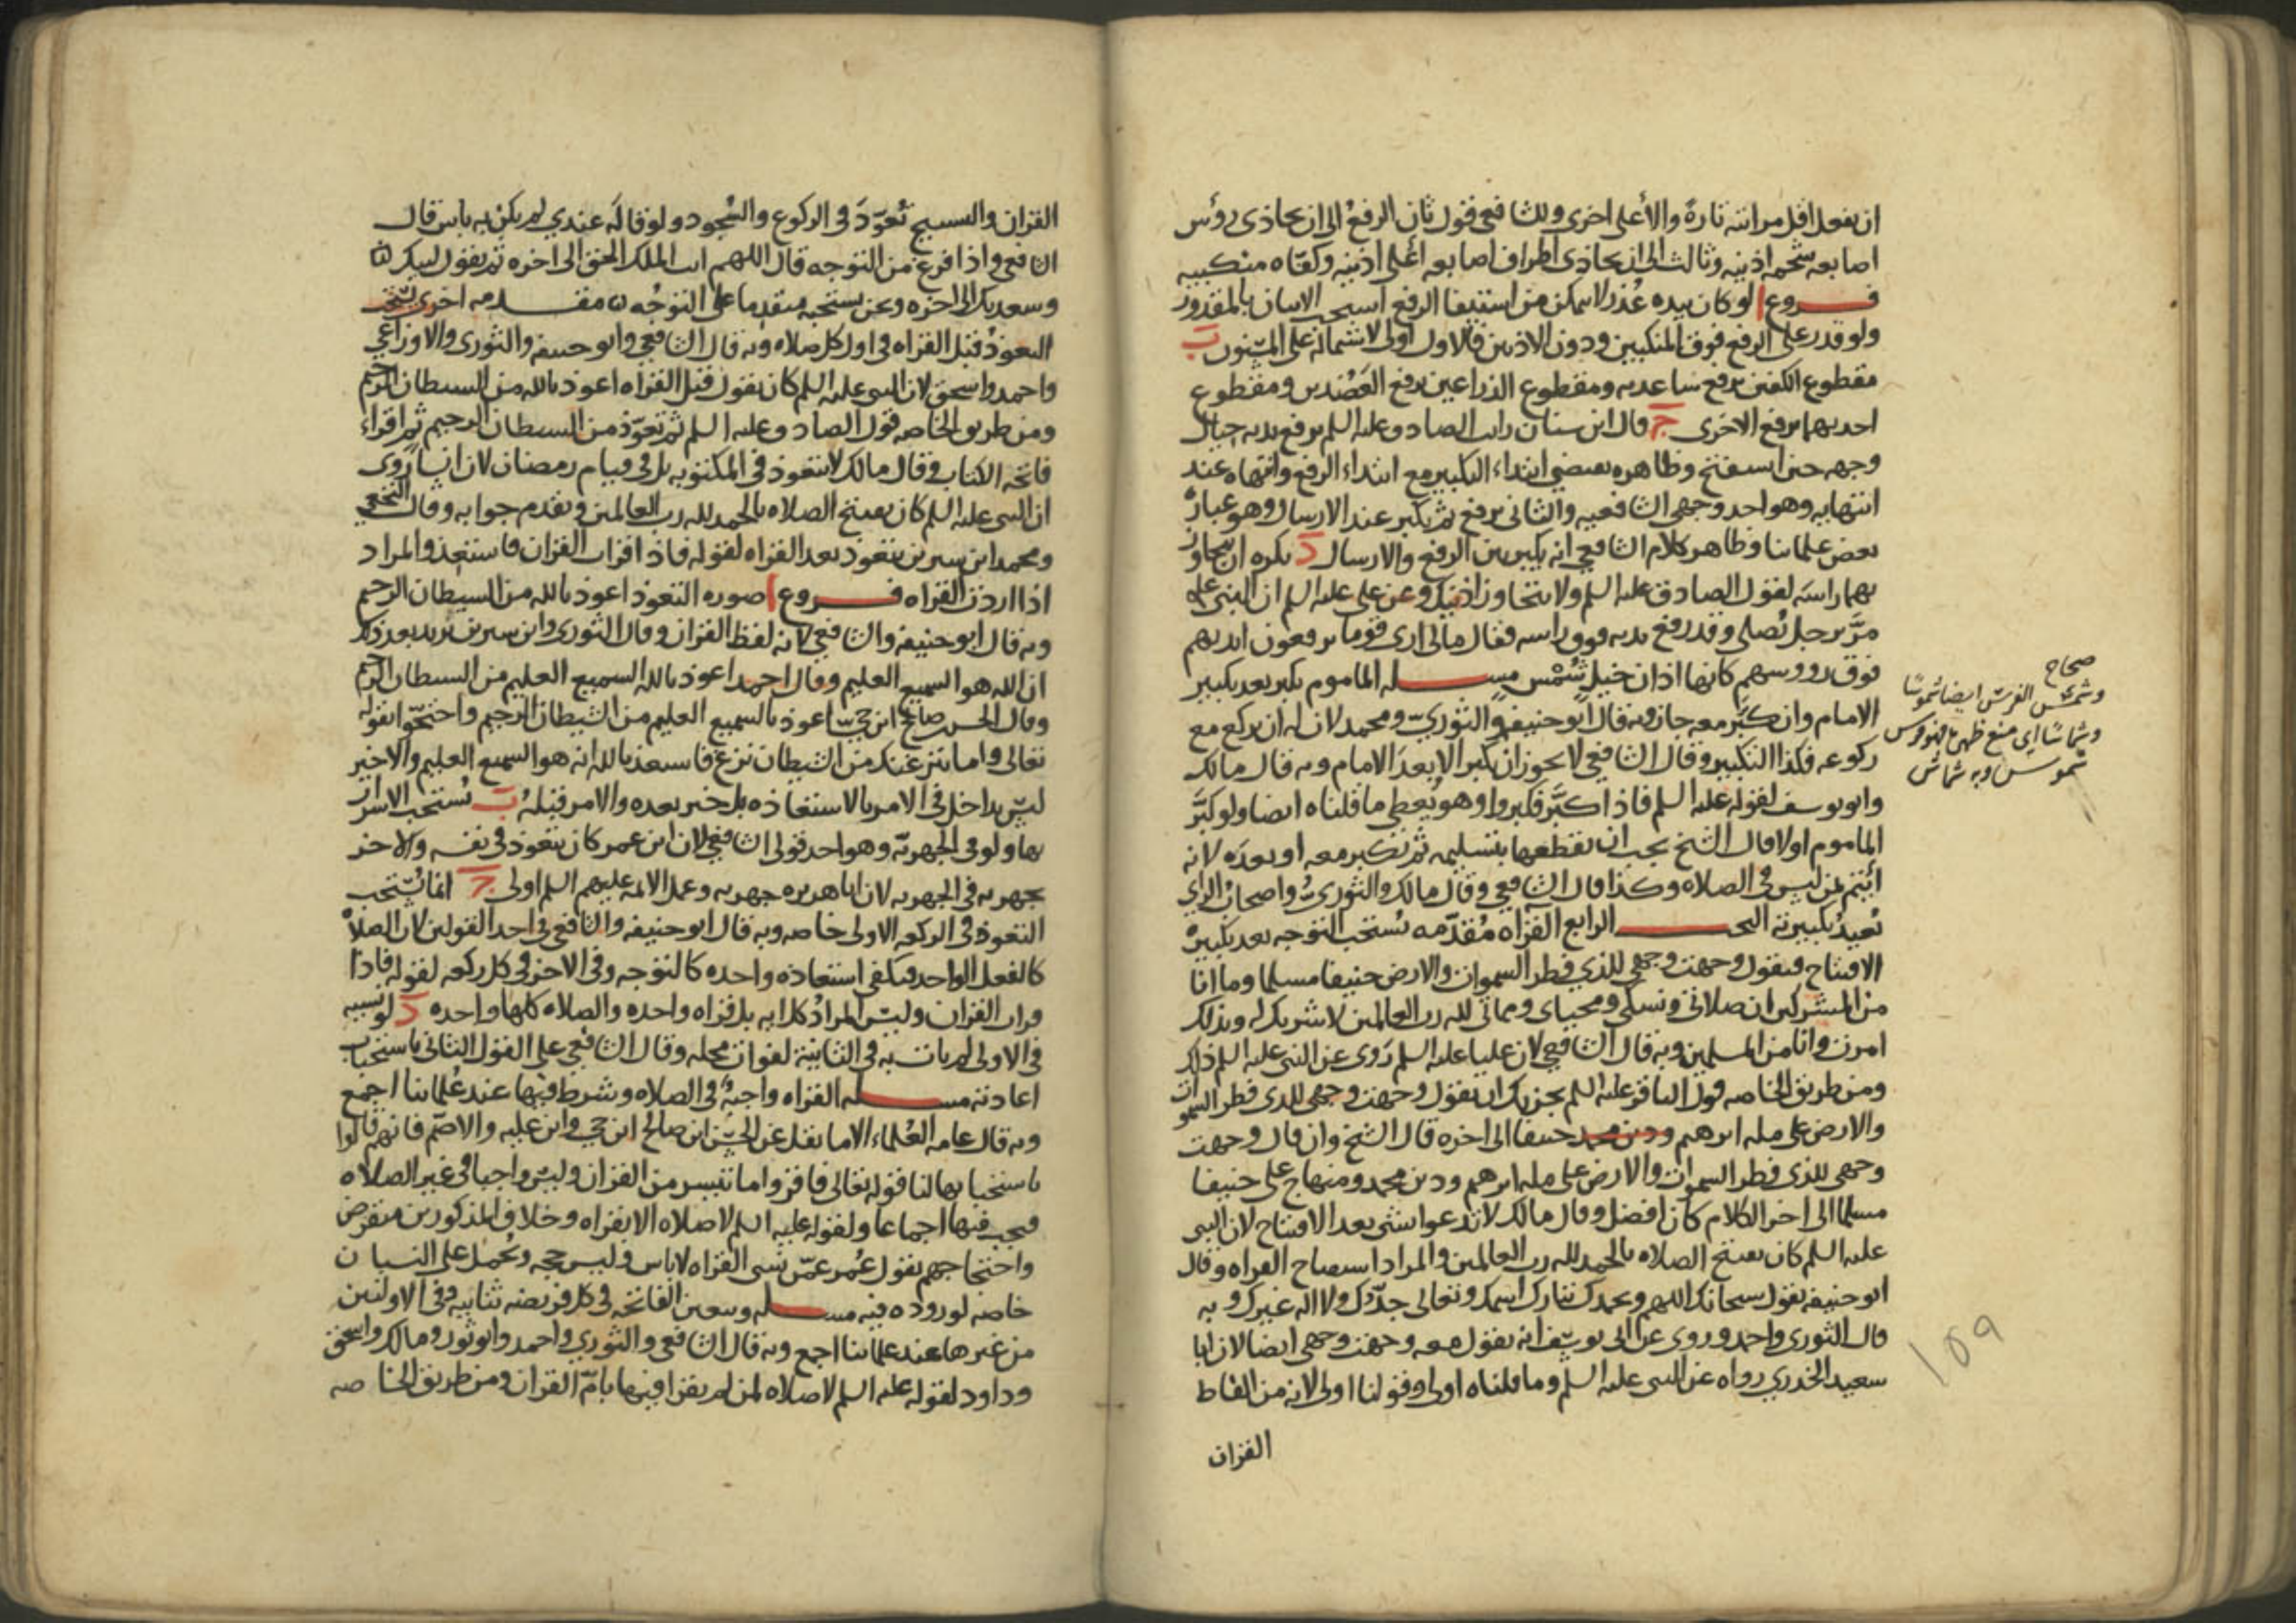 ان يفعل اقل مراتبه تارةً والأعلى اخرى وللشافعي قول ثان الرفعُ الى ان يحاذى رؤس
اصابعه شحمه اذنيه وثالث الى ان يحاذى اطراف اصابعه أعلى اذنيه وكفّاه منكبيه
فروع ا لو كان بيده عُذر لا يمكن من استيفا الرفع استحب الاتيان بالمقدور
ولو قدر على الرفع فوق المنكبين ودون الاذنين فالاول اولى لاشتماله على المسْنون ب
مقطوع الكفين يرفع ساعديه ومقطوع الذراعين يرفع العَضُدين ومقطوع
احديهما يرفع الاخرى ج قال ابن سنان رايت الصادق عليه السلم يرفع يديه حيال
وجهه حين استفتح وظاهره يقتضي ابتداء التكبير مع ابتداء الرفع وانتهاه عند
انتهايه وهو احد وجهى الشافعيه والثانى يرفع ثم يكبر عند الارسال وهو عبارةُ
بعض علمائنا وظاهر كلام الشافعي انه يكبر بين الرفع والارسال د يكره ان يتجاوز
بهما راسَه لقول الصادق عليه السلم ولا يتجاوز اذنيك وعن على عليه السلم ان النبى عليه
مرَّ برجل يُصلى وقد رفع يديه فوق راسه فقال مالى ارى قوما يرفعون ايديهم
فوق روُوسهم كانها اذان خيل شُمْس مسله الماموم يكبر بعد تكبير
الامام وان كبَّر معه جاز وبه قال ابو حنيفه والثورى ومحمد لان له ان يركع مع
ركوعه فكذا التكبير وقال الشافعي لا يجوز ان يكبر الا بعدَ الامام وبه قال مالك
وابو يوسف لقوله عليه السلم فاذا كبَّر فكبروا وهو يُعطى ما قلناه ايضا ولو كبَّر
الماموم اولا قال الشيخ يجب ان يقطعها بتسليمه ثم يكبر معه او بعدَه لانه
ائتم لمن ليس فى الصلاه وكذا قال الشافعي وقال مالك والثوري واصحاب الراي
يُعيد تكبيرته البحث الرابع القراه مُقدّمه يُستحب التوجه بعد تكبيرة
الافتتاح فيقول وجهت وجهي للذي فطر السموات والارض حنيفا مسلما وما انا
من المشركين ان صلاتى ونسكى ومحياى ومماتى لله رب العالمين لا شريك له وبذلك
امرت وانا من المسلمين وبه قال الشافعي لان عليا عليه السلم رَوى عن النبى عليه السلم ذلك
ومن طريق الخاصه قول الباقر عليه السلم يجزيك ان يقول وجهت وجهى للذى فطر السموات
والارض على مله ابرهيم ودين محمد حنيفا الى اخره قال الشيخ وان قال وجهت
وجهى للذى فطر السموات والارض على مله ابرهيم ودين محمد ومنهاج على حنيفا
مسلما الى اخر الكلام كان افضل وقال مالك لا تدعوا بشى بعد الافتتاح لان النبى
عليه السلم كان يفتتح الصلاه بالحمد لله رب العالمين والمراد استفتاح القراه وقال
ابو حنيفه يقول سبحانك اللهم وبحمدك تبارك اسمك وتعالى جدّك ولا اله غيرك وبه
قال الثورى واحمد وروى عن ابى يوسف انه يقول معه وجهت وجهى ايضا لان ابا
سعيد الخدري رواه عن النبى عليه السلم وما قلناه اولى وقولنا اولى لانه من الفاظ
القران
صحاح
وشمَس الفرس ايضا شموسًا
وشماسًا اى منع ظهره فهو فرس
شموس وبه شماس
159
القران والسبيح تُعوّدَ فى الركوع والسُجود ولو قاله عندي لم يكن به باس قال
الشافعي واذا فرغ من التوجه قال اللهم انت الملك الحق الى اخره ثم يقول لبيك
وسعديك الى اخره ونحن نستحبه متقدما على التوجُه مقدمه اخرى يستحب
التعوذُ قبل القراه فى اول كل صلاه وبه قال الشافعي وابو حنيفه والثورى والاوزاعي
واحمد واسحق لان النبى عليه السلم كان يقول قبل القراه اعوذ بالله من الشيطان الرجيم
ومن طريق الخاصه قول الصادق عليه السلم ثم تعوّذ من الشيطان الرجيم ثم اقراء
فاتحه الكتاب وقال مالك لا يتعوذ فى المكتوبه بل فى قيام رمضان لان انسا رَوى
ان النبى عليه السلم كان يفتتح الصلاه بالحمد لله رب العالمين وتقدم جوابه وقال النخعي
ومحمد ابن سيرين يتعوذ بعد القراه لقوله فاذا قرات القران فاستعذ والمراد
اذا اردت القراه فروع ا صوره التعوذ اعوذ بالله من الشيطان الرجيم
وبه قال ابو حنيفه والشافعي لانه لفظ القران وقال الثورى وابن سيرين يزيد بعد ذلك
ان الله هو السميع العليم وقال احمد اعوذ بالله السميع العليم من الشيطان الرجيم
وقال الحسن بن صالح ابن حىّ اعوذ بالسميع العليم من الشيطان الرجيم واحتجّوا بقوله
تعالى واما ينزغنك من الشيطان نزغ فاستعذ بالله انه هو السميع العليم والاخير
ليس بداخل فى الامر بالاستعاذه بل خبر بعده والامر قبلهُ ب يُستحب الاسرار
بها ولو فى الجهريّه وهو احد قولى الشافعي لان ابن عمر كان يتعوذ فى نفسه والاخر
يجهر به فى الجهريه لان ابا هريره جهر به وعمل الائمه عليهم السلم اولى ج انما يُستحب
التعوذ فى الركعه الاولى خاصه وبه قال ابو حنيفه والشافعي فى احد القولين لان الصلاةَ
كالفعل الواحد فيكفى استعاذه واحده كالتوجه وفى الاخر فى كل ركعه لقوله فاذا
قرات القران وليس المرادُ كل ايه بل قراه واحده والصلاه كلها واحده د لو نسيه
فى الاولى لم يات به فى الثانية لفوات محله وقال الشافعي على القول الثانى باستحباب
اعادته مسله القراه واجبةٌ فى الصلاه وشرط فيها عند عُلمائنا اجمع
وبه قال عامه العُلماء الا ما نقل عن الحسَن ابن صالح ابن حى وابن عليه والاصمّ فانهم قالوا
باستحبابها لنا قوله تعالى فاقروا ما تيسر من القران وليس واجبا فى غير الصلاه
فيجب فيها اجماعا ولقوله عليه السلم لا صلاه الا بقراه وخلاف المذكورين منقرض
واحتجاجهم بقول عُمر عمّن نسى القراه لا باس وليس حجه ويُحمل على النسيان
خاصه لوروده فيه مسله وتتعين الفاتحه فى كل فريضه ثنائيه وفى الاولتين
من غيرها عند علمائنا اجمع وبه قال الشافعي والثوري واحمد وابو ثور ومالك واسحق
وداود لقوله عليه السلم لا صلاه لمن لم يقرا فيها بامّ القران ومن طريق الخاصه